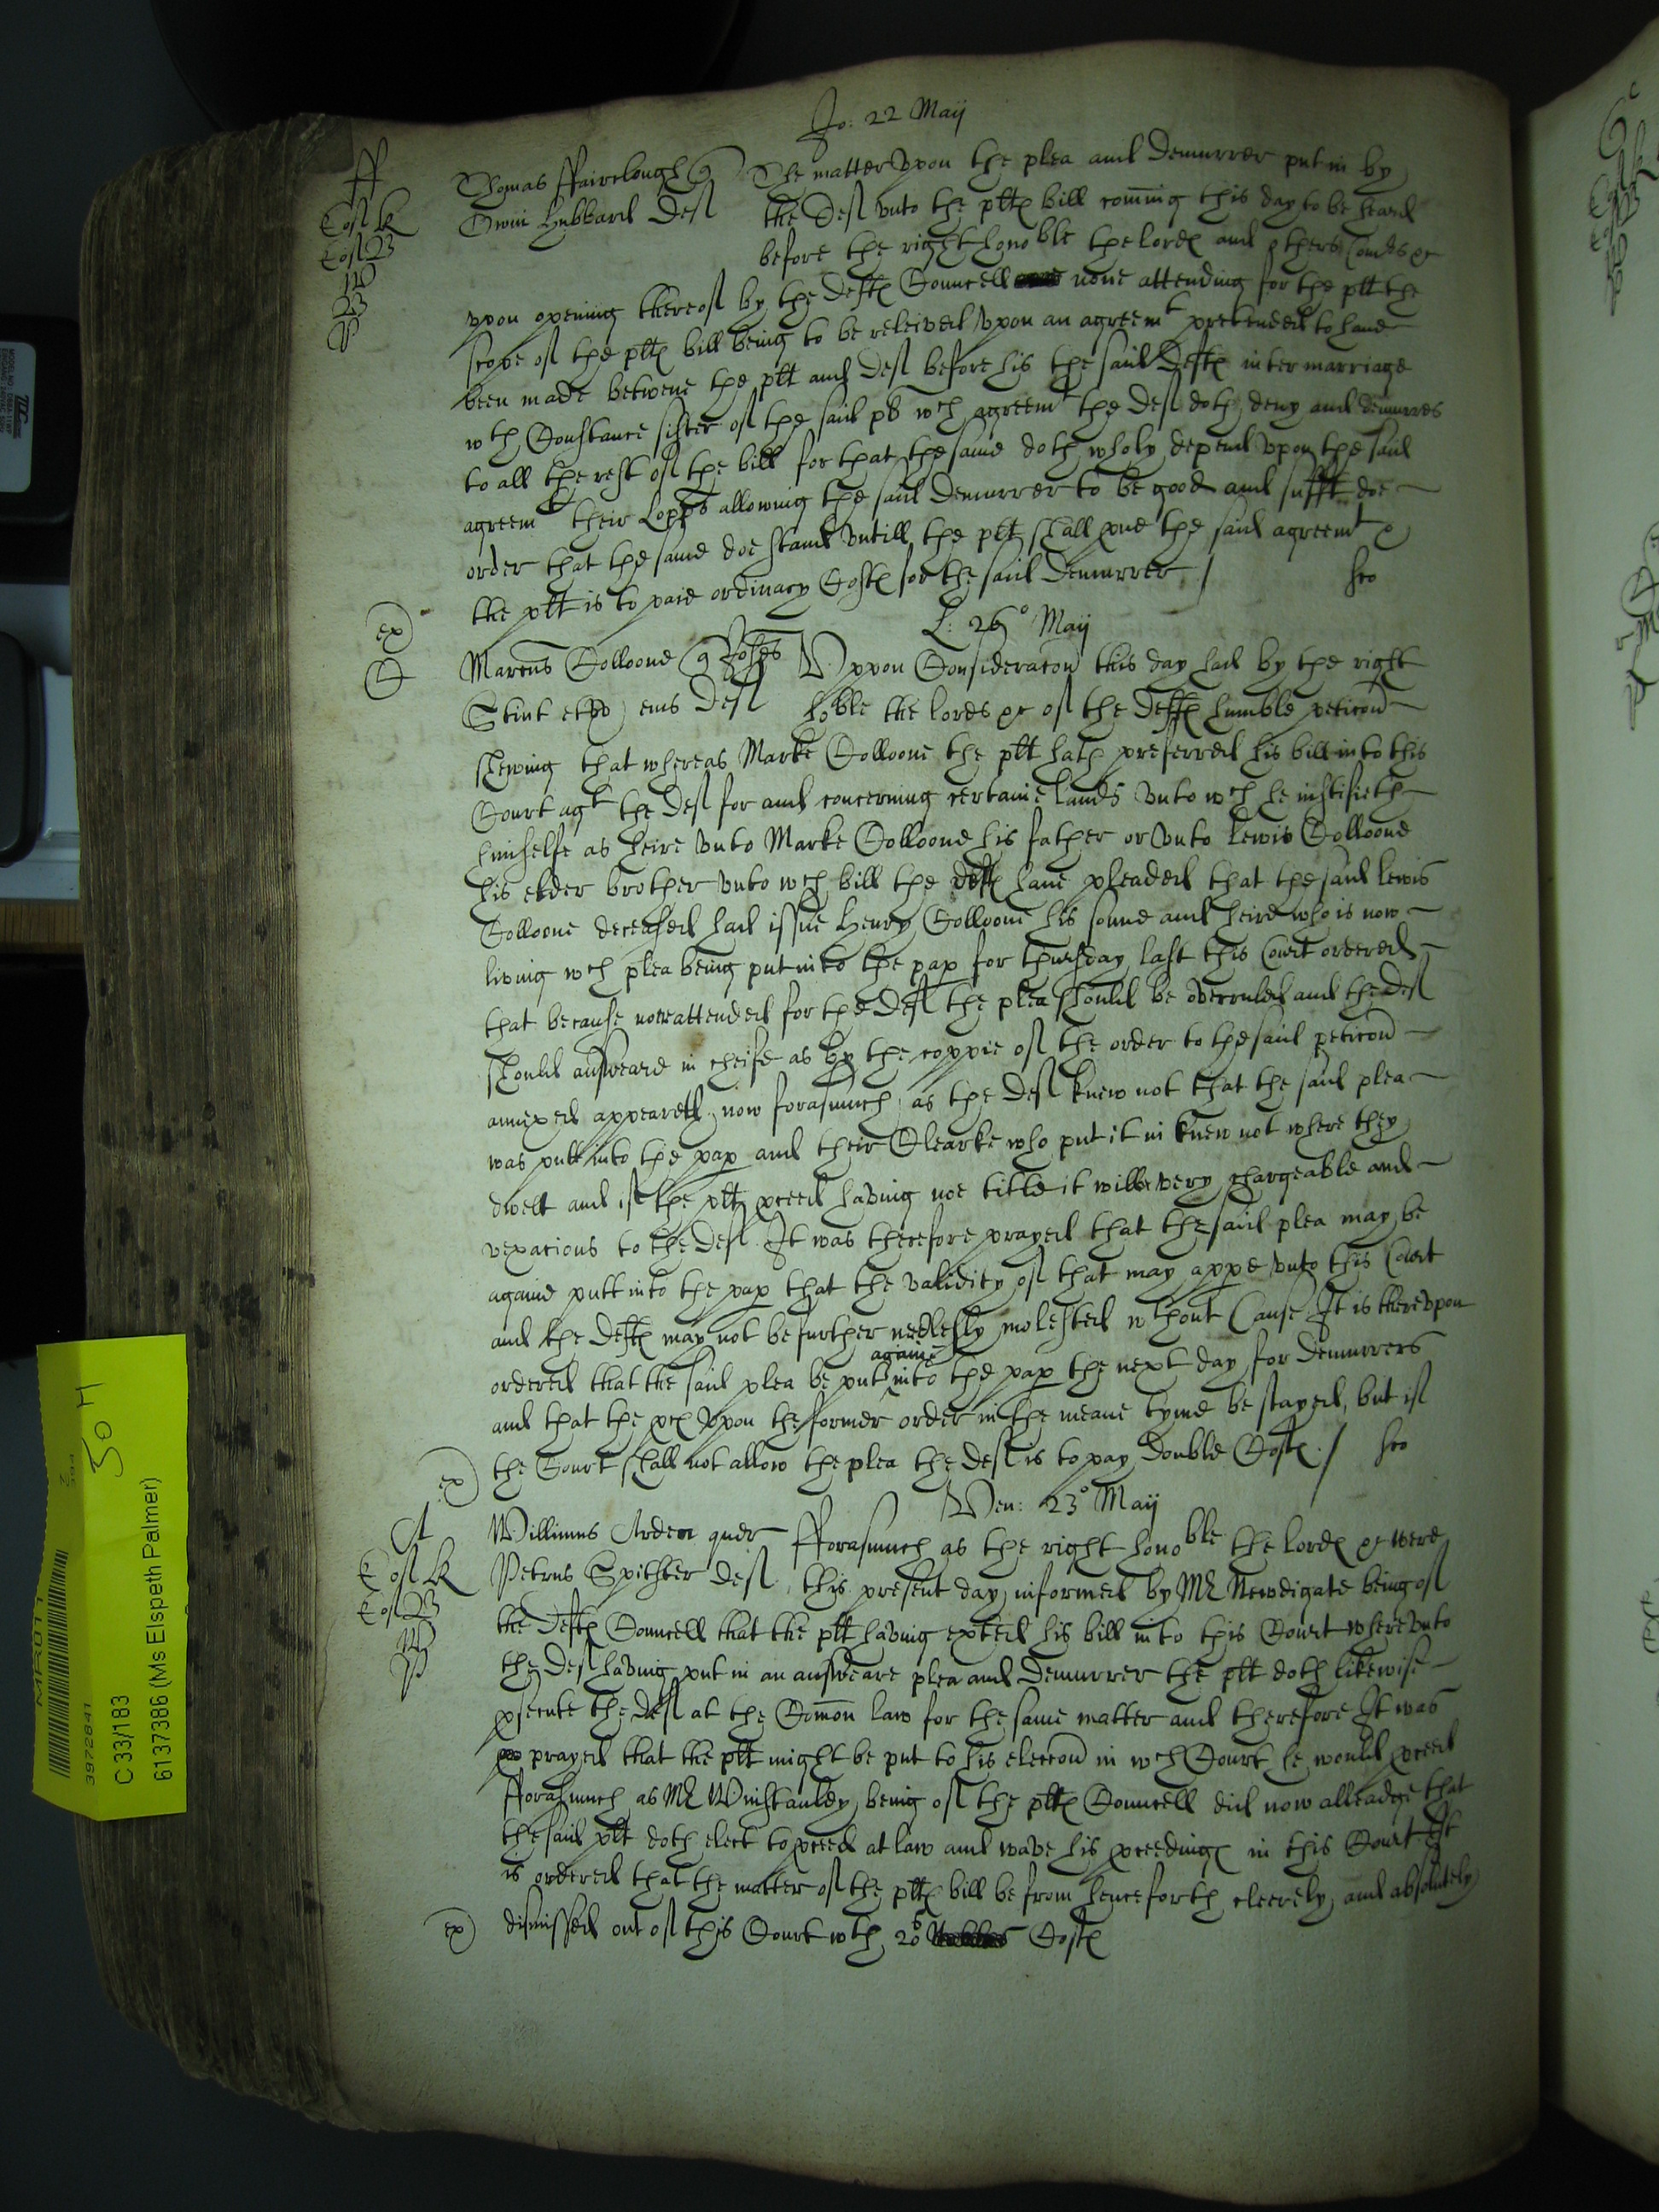 Jo: 22 Maij
ff
Thomas ffairclough q The matter vpon the plea and Demurrer put in by
Owin Hubbard Def the Def vnto the plts bill coming this day to be heard
before the right honoble the lords and others Comrs &c
vpon opening thereof by the Defts Councell none attending for the plt the
scope of the plts bill being to be releived vpon an agreemt pretended to have
been made betwene the plt and Def before his the said Defts intermarriage
wth Constance sister of the said pl wch agreemt the Def doth deny and demurres
to all the rest of the bill for that the same doth wholy depend vpon the said
agreemt their Lopps allowing the said Demurrer to be good and sufft doe
order that the same doe stand vntill the plt shall pve the said agreemt &
the plt is to paie ordinary Costs for the said Demurrer /
L: 26o Maij
ex
Marcus Colloone q Johes Vppon Consideracon this day had by the right
Stint et Def hoble the lords &c of the Defts humble peticon
shewing that whereas Marke Colloone the plt hath preferred his bill into this
Court agt the Def for and concerning certaine lands vnto wch he instifieth
himselfe as heire vnto Marke Colloone his father or vnto Lewis Colloone
his elder brother vnto wch bill the Defts have pleaded that the said Lewis
Colloone deceased had issue Henry Colloone his sonne and heire who is now
living wch plea being put into the pap for thursday last this Court ordered
that because none attended for the Def the plea should be overruled and the Def
should answeare in cheife as by the coppie of the order to the said peticon
annexed appeareth, now forasmuch as the Def knew not that the said plea
was putt into the pap and their Clearke who put it in knew not where they
dwelt and if the plt pceed having noe title it wilbe very chargeable and
vexacious to the Def. It was therefore prayed that the said plea may be
againe putt into the pap that the validity of that may appe vnto this Court
and the Defts may not be further nedlessly molested wthout Cause. It is therevpon
ordered that the said plea be put againe into the pap the next day for Demurrers
and that the pces vpon the former order in the meane tyme be stayed, but if
the Court shall not allow the plea the Def is to pay Double Costs. /
Ven: 23o Maij
ex
A
Willimus Arden quer fforasmuch as the right honoble the lords &c were
Petrus Def, this present day informed by Mr Newdigate being of
the Defts Councell that the plt having exhted his bill into this Court wherevnto
the Def having put in an answeare plea and Demurrer the plt doth likewise
psecute the Def at the Comon law for the same matter and therefore It was
prayed that the plt might be put to his eleccon in wch Court he would pceed
fforasmuch as Mr Winstanley being of the plts Councell did now alleadge that
the said plt doth elect to pceed at law and wave his pceedings in this Court It
is ordered that the matter of the plts bill be from henceforth cleerely and absolutely
ex
dismissed out of this Court wth 20s Costs
3972841
C 33/183
6137386 (Ms Elspeth Palmer)
30 H